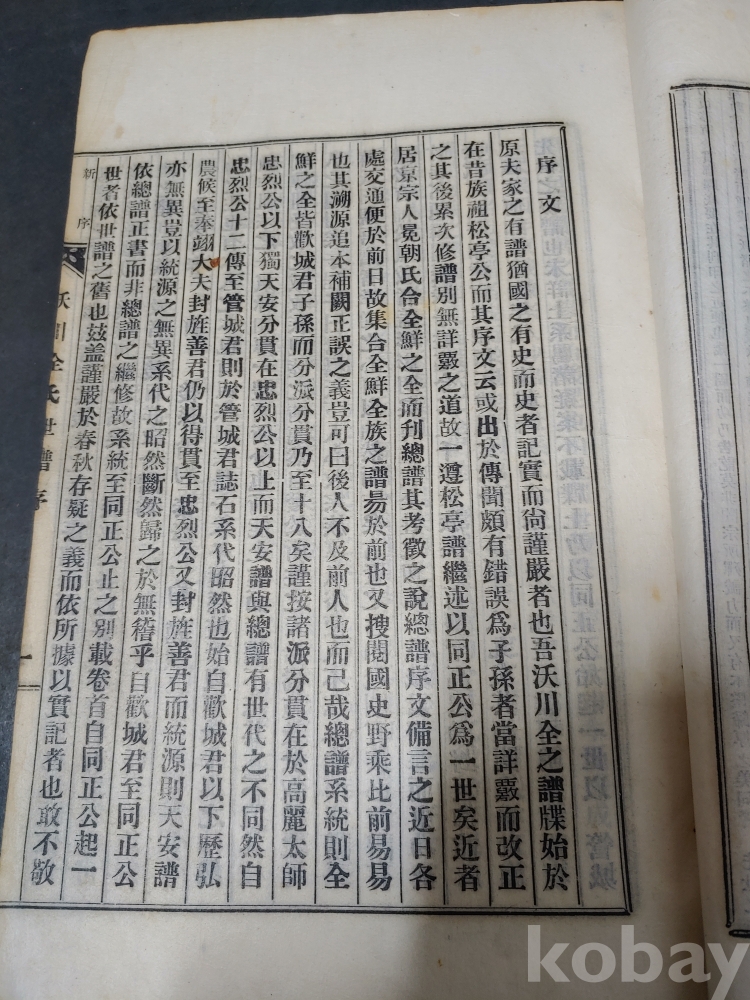 序文
原夫家之有譜猶國之有史而史者記實而尙謹嚴者也吾沃川全之譜牒始於
在昔族祖松亭公而其序文云或出於傳聞頗有錯誤爲子孫者當詳覈而改正
之其後累次修譜別無詳覈之道故一遵松亭譜繼述以同正公爲一世矣近者
居京宗人冕朝氏合全鮮之全而刊總譜其考徵之說總譜序文備言之近日各
處交通便於前日故集合全鮮全族之譜易於前也又搜閱國史野乘比前易易
也其溯源追本補闕正誤之義豈可曰後人不及前人也而已哉總譜系統則全
鮮之全皆歡城君子孫而分派分貫乃至十八矣謹按諸派分貫在於高麗太師
忠烈公以下獨天安分貫在忠烈公以上而天安譜與總譜有世代之不同然自
忠烈公十二傳至管城君則於管城君誌石系代昭然也始自歡城君以下歷弘
農候至奉翊大夫封旌善君仍以得貫至忠烈公又封旌善君而統源則天安譜
亦無異豈以統源之無異系代之昭然斷然歸之於無稽乎自歡城君至同正公
依總譜正書而非總譜之繼修故系統至同正公止之別載卷首自同正公起一
世者依世譜之舊也玆盖謹嚴於春秋存疑之義而依所據以實記者也敢不敬
新序
沃川全氏世譜序
一
kobay